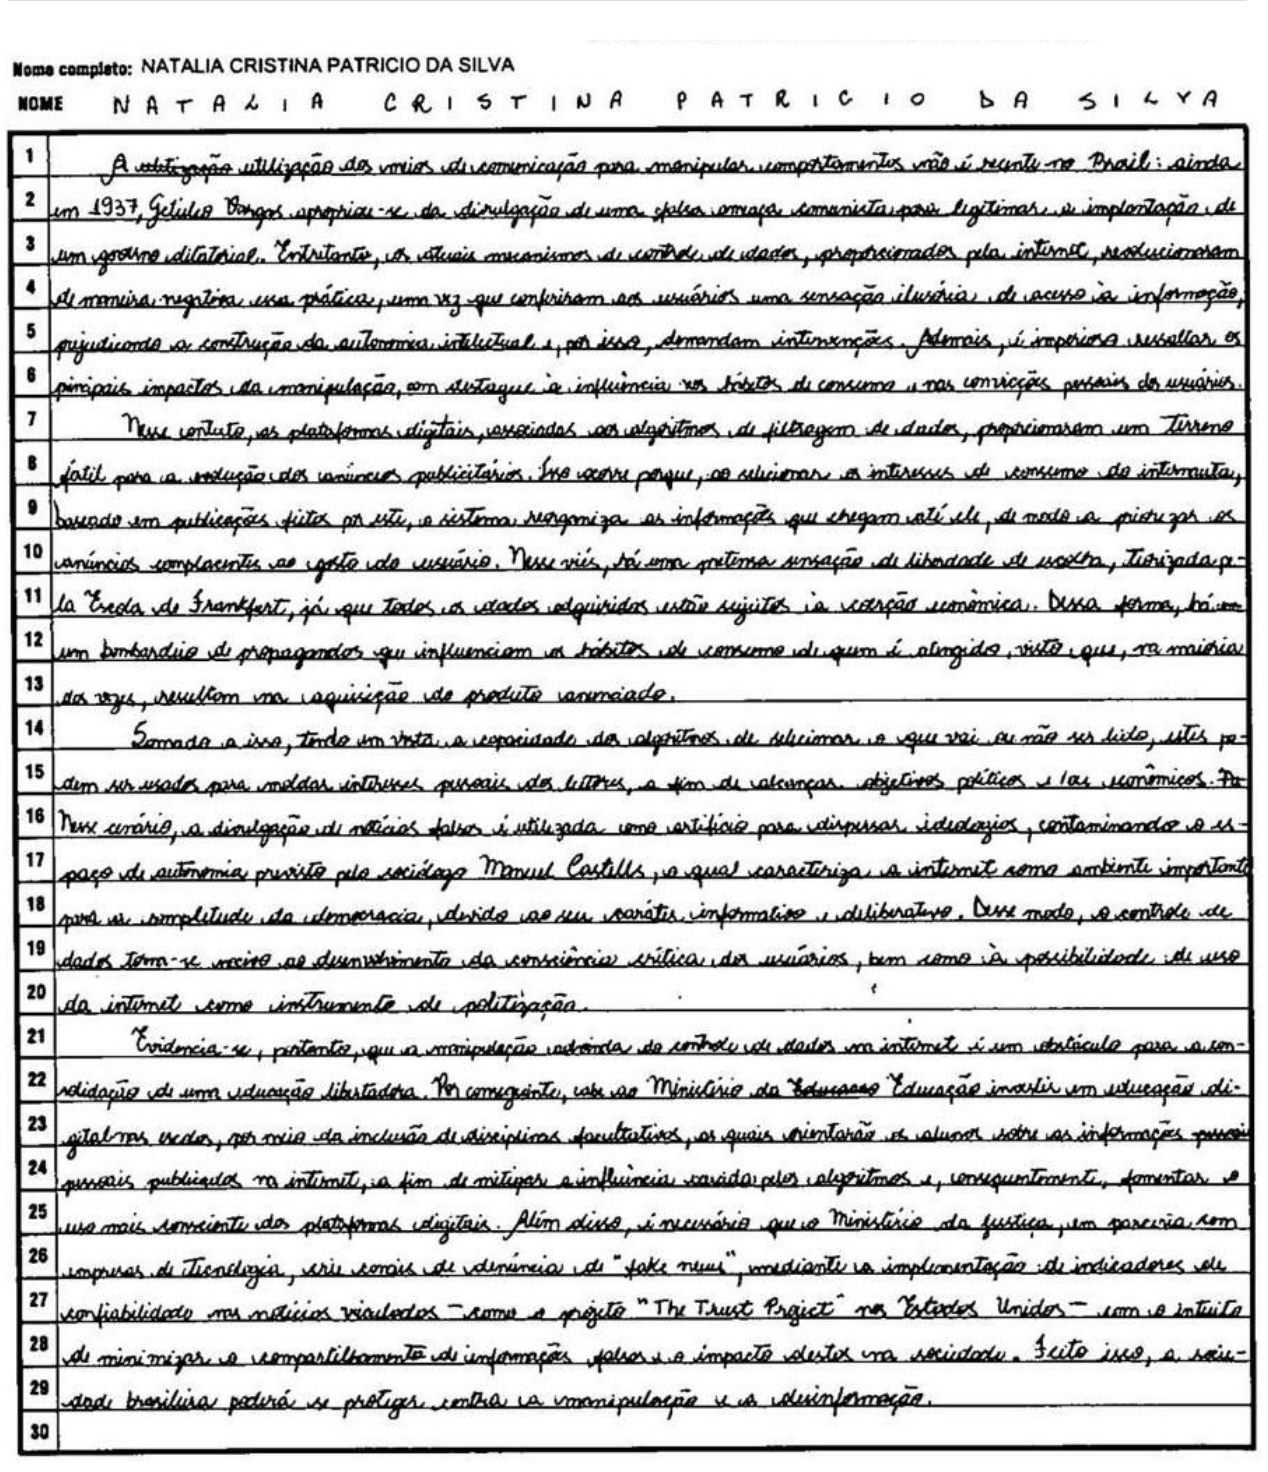 Nome completo: NATALIA CRISTINA PATRICIO DA SILVA
NOME NATALIA CRISTINA PATRICIO DA SILVA
1 A utilização dos meios de comunicação para manipular comportamentos não é recente no Brasil: ainda
2 em 1937, Getúlio Vargas apropriou-se da divulgação de uma falsa ameaça comunista para legitimar a implantação de
3 um governo ditatorial. Entretanto, os atuais mecanismos de controle de dados, proporcionados pela internet, revolucionaram
4 de maneira negativa essa prática, uma vez que conferiram aos usuários uma sensação ilusória de acesso à informação,
5 prejudicando a construção da autonomia intelectual e, por isso, demandam intervenções. Ademais, é imperioso ressaltar os
6 pinipais impactos da manipulação, com destaque à influência nos hábitos de consumo e nas convicções pessoais dos usuários.
7 Nesse contexto, as plataformas digitais, associadas aos algoritmos de filtragem de dados, proporcionaram um terreno
8 fértil para a evolução dos anúncios publicitários. Isso ocorre porque, ao selecionar os interesses de consumo do internauta,
9 baseado em publicações feitas por este, o sistema reorganiza as informações que chegam até ele, de modo a priorizar os
10 anúncios complacentes ao gosto do usuário. Nesse viés, há uma pretensa sensação de liberdade de escolha, teorizada pe-
11 la Escola de Frankfurt, já que todos os dados adquiridos estão sujeitos à coerção econômica. Dessa forma, há
12 um bombardeio de propagandas que influenciam os hábitos de consumo de quem é atingido, visto que, na maioria
13 das vezes, resultam na aquisição do produto anunciado.
14 Somado a isso, tendo em vista a capacidade dos algoritmos de selecionar o que vai ou não ser lido, estes po-
15 dem ser usados para moldar interesses pessoais dos leitores, a fim de alcançar objetivos políticos e/ou econômicos.
16 Nesse cenário, a divulgação de notícias falsas é utilizada como artifício para dispersar ideologias, contaminando o es-
17 paço de autonomia previsto pelo sociólogo Manuel Castells, o qual caracteriza a internet como ambiente importante
18 para a completude da democracia, devido ao seu caráter informativo e deliberativo. Desse modo, o controle de
19 dados torna-se nocivo ao desenvolvimento da consciência crítica dos usuários, bem como à possibilidade de uso
20 da internet como instrumento de politização.
21 Evidencia-se, portanto, que a manipulação advinda do controle de dados na internet é um obstáculo para a con-
22 solidação de uma educação libertadora. Por conseguinte, cabe ao Ministério da Educação investir em educação di-
23 gital nas escolas, por meio da inclusão de disciplinas facultativas, as quais orientarão os alunos sobre as informações
24 pessoais publicadas na internet, a fim de mitigar a influência exercida pelos algoritmos e, consequentemente, fomentar o
25 uso mais consciente das plataformas digitais. Além disso, é necessário que o Ministério da Justiça, em parceria com
26 empresas de Tecnologia, crie canais de denúncia de "fake news", mediante a implementação de indicadores de
27 confiabilidade nas notícias veiculadas – como o projeto "The Trust Project" nos Estados Unidos – com o intuito
28 de minimizar o compartilhamento de informações falsas e o impacto destes na sociedade. Feito isso, a socie-
29 dade brasileira poderá se proteger contra a manipulação e a desinformação.
30